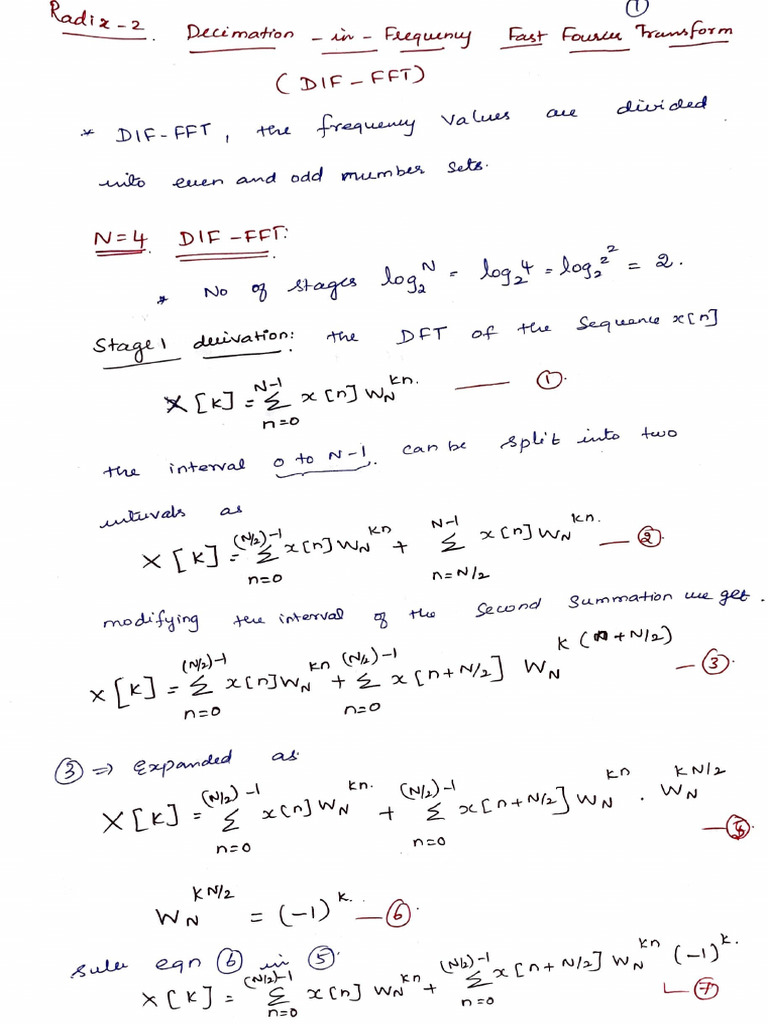 ①
Radix-2 Decimation-in-Frequency Fast Fourier Transform
(DIF-FFT)
* DIF-FFT, the frequency values are divided
into even and odd number sets.
N=4 DIF-FFT:
* No of stages log₂ᴺ = log₂⁴ = log₂2² = 2.
Stage 1 derivation: the DFT of the sequence x[n]
X[k] = Σ_{n=0}^{N-1} x[n] W_N^{kn}. — ①
the interval 0 to N-1 can be split into two
intervals as
X[k] = Σ_{n=0}^{(N/2)-1} x[n] W_N^{kn} + Σ_{n=N/2}^{N-1} x[n] W_N^{kn}. — ②
modifying the interval of the second summation we get.
X[k] = Σ_{n=0}^{(N/2)-1} x[n] W_N^{kn} + Σ_{n=0}^{(N/2)-1} x[n+N/2] W_N^{k(n+N/2)} — ③
③ ⇒ Expanded as
X[k] = Σ_{n=0}^{(N/2)-1} x[n] W_N^{kn}. + Σ_{n=0}^{(N/2)-1} x[n+N/2] W_N^{kn} . W_N^{kN/2} — ⑤
W_N^{kN/2} = (-1)^k. — ⑥
eqn ⑥ in ⑤.
X[k] = Σ_{n=0}^{(N/2)-1} x[n] W_N^{kn} + Σ_{n=0}^{(N/2)-1} x[n+N/2] W_N^{kn} (-1)^k. — ⑦